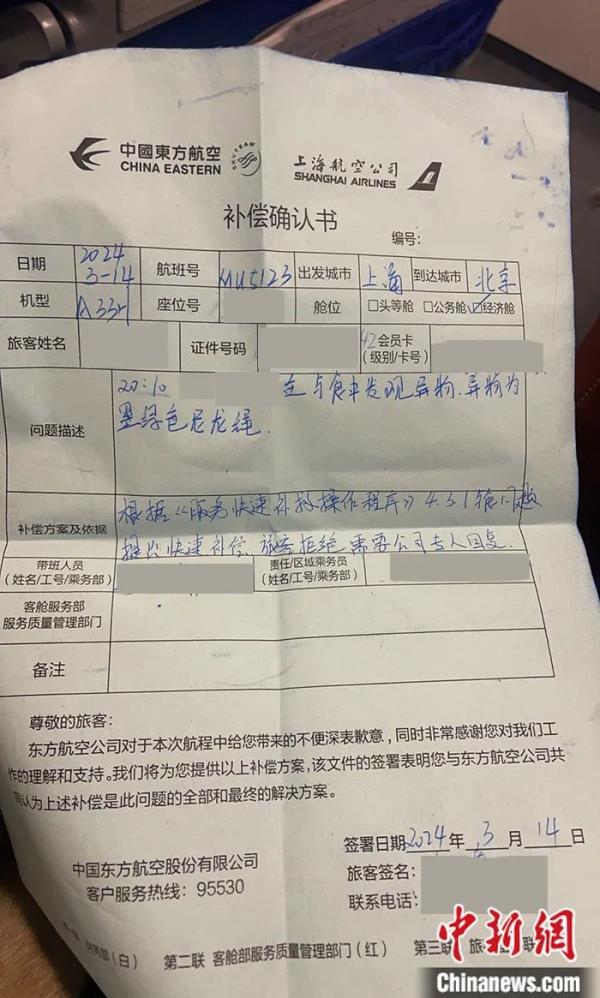 中國東方航空
CHINA EASTERN
SKYTEAM
上海航空公司
SHANGHAI AIRLINES
补偿确认书
编号:
日期 2024 3-14 航班号 MU5123 出发城市 上海 到达城市 北京
机型 A33H 座位号 舱位 □头等舱 □公务舱 ☑经济舱
旅客姓名 证件号码 会员卡
(级别/卡号)
20:10 在与食中发现异物.异物为
问题描述 墨绿色尼龙绳.
补偿方案及依据 根据《服务快速补救操作程序》4.3.1 问题
提出快速补偿,旅客拒绝,需要公司专人回复.
带班人员
(姓名/工号/乘务部)
责任/区域乘务员
(姓名/工号/乘务部)
客舱服务部
服务质量管理部门
备注
尊敬的旅客:
东方航空公司对于本次航程中给您带来的不便深表歉意,同时非常感谢您对我们工
作的理解和支持。我们将为您提供以上补偿方案,该文件的签署表明您与东方航空公司共
同认为上述补偿是此问题的全部和最终的解决方案。
签署日期 2024 年 3 月 14 日
中国东方航空股份有限公司
旅客签名:
客户服务热线: 95530
联系电话:
财务部(白) 第二联 客舱部服务质量管理部门(红) 第三联
中新网
Chinanews.com